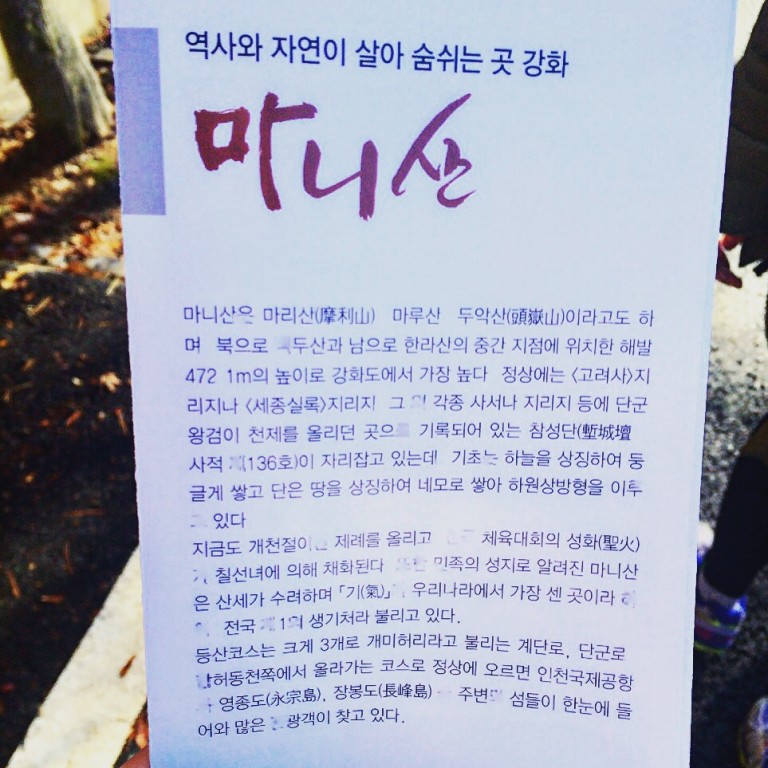 역사와 자연이 살아 숨쉬는 곳 강화
마니산
마니산은 마리산(摩利山) 마루산 두악산(頭嶽山)이라고도 하
며 북으로 남으로 한라산의 중간 지점에 위치한 해발
472 1m의 높이로 강화도에서 가장 높다 정상에는 〈고려사〉지
리지나 〈세종실록〉지리지 그 각종 사서나 지리지 등에 단군
왕검이 천제를 올리던 곳으로 기록되어 있는 참성단(塹城壇
사적 (136호)이 자리잡고 있는데 기초는 하늘을 상징하여 둥
글게 쌓고 단은 땅을 상징하여 네모로 쌓아 하원상방형을 이루
있다
지금도 개천절이면 제례를 올리고 체육대회의 성화(聖火)
칠선녀에 의해 채화된다 민족의 성지로 알려진 마니산
은 산세가 수려하며 「기(氣)」 우리나라에서 가장 센 곳이라
전국 제1의 생기처라 불리고 있다.
등산코스는 크게 3개로 개미허리라고 불리는 계단로, 단군로
올라가는 코스로 정상에 오르면 인천국제공항
영종도(永宗島), 장봉도(長峰島) 주변 섬들이 한눈에 들
어와 많은 찾고 있다.